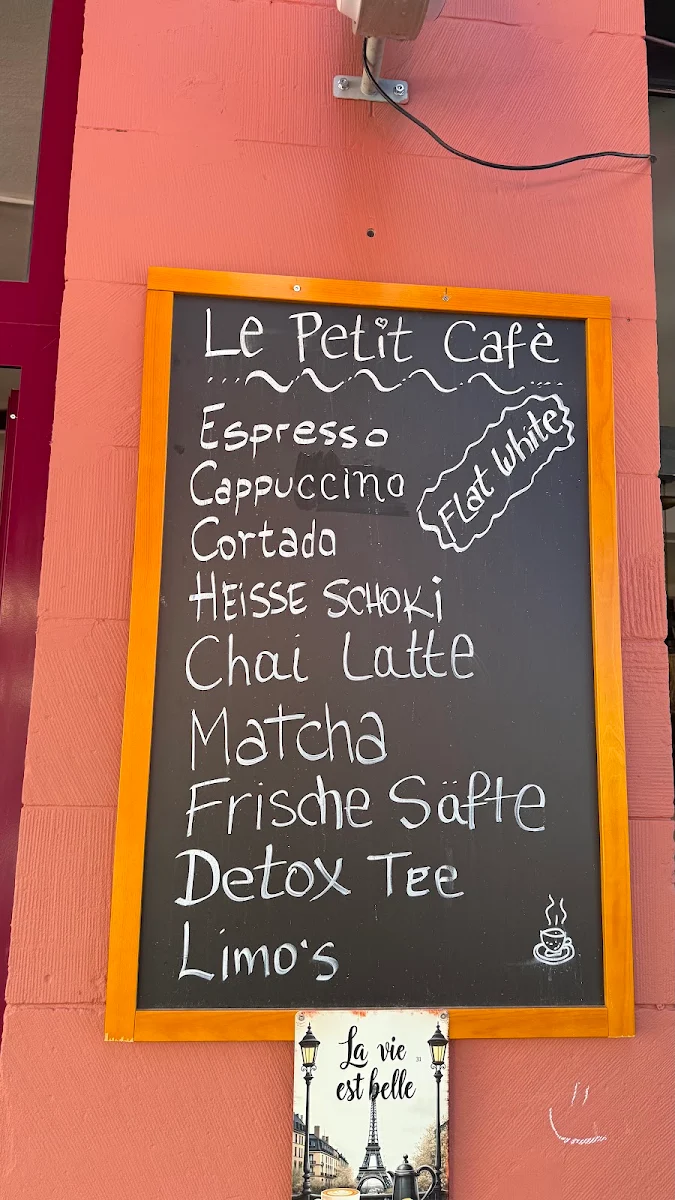 Le Petit Cafè
Espresso
Flat White
Cappuccino
Cortado
HEiSSE SCHOKi
Chai Latte
Matcha
Frische Säfte
Detox Tee
Limo's
La vie
est belle